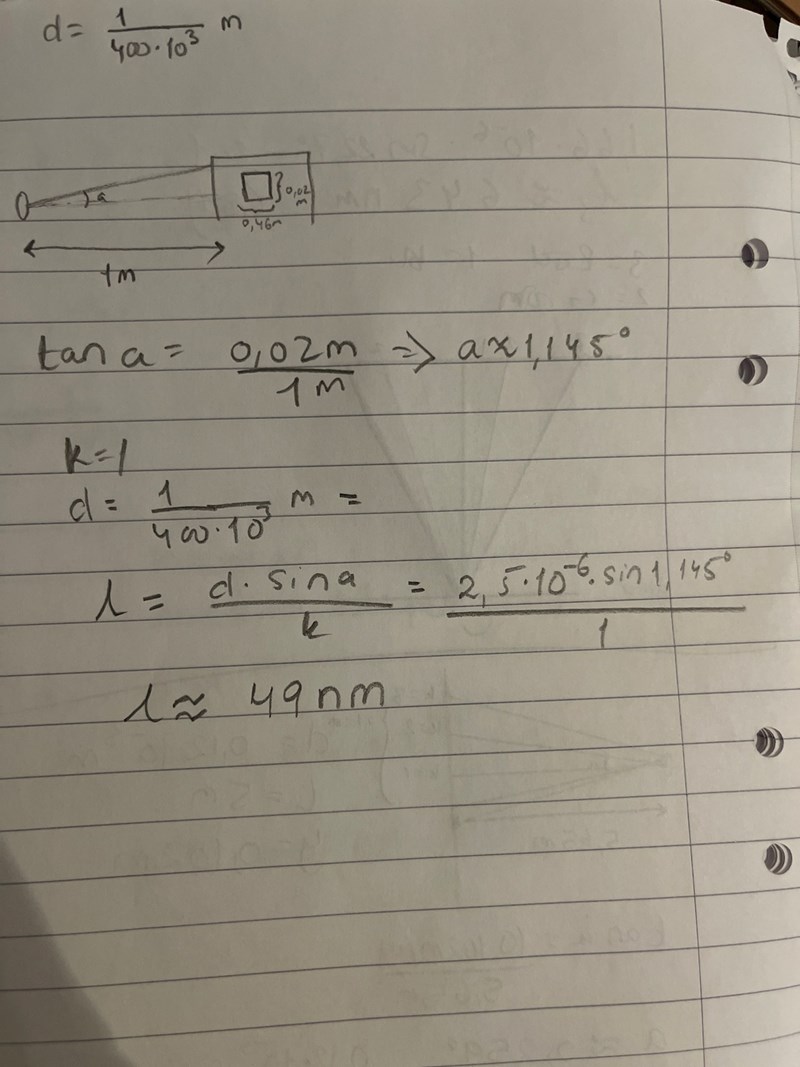 d = 1/(400·10³) m
a
0,02 m
0,46m
1m
tan a = 0,02m/1m => a ≈ 1,145°
k=1
d = 1/(400·10³) m =
λ = d · sin a / k = 2,5·10⁻⁶ · sin 1,145° / 1
λ ≈ 49 nm